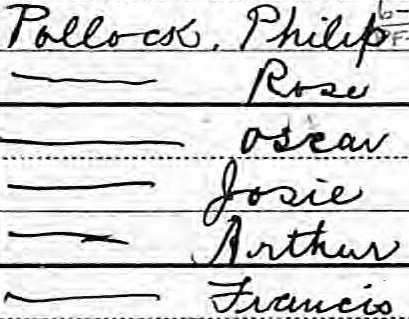 Pollock, Philip 6-
F-
— Rose
— Oscar
— Josie
— Arthur
— Francis